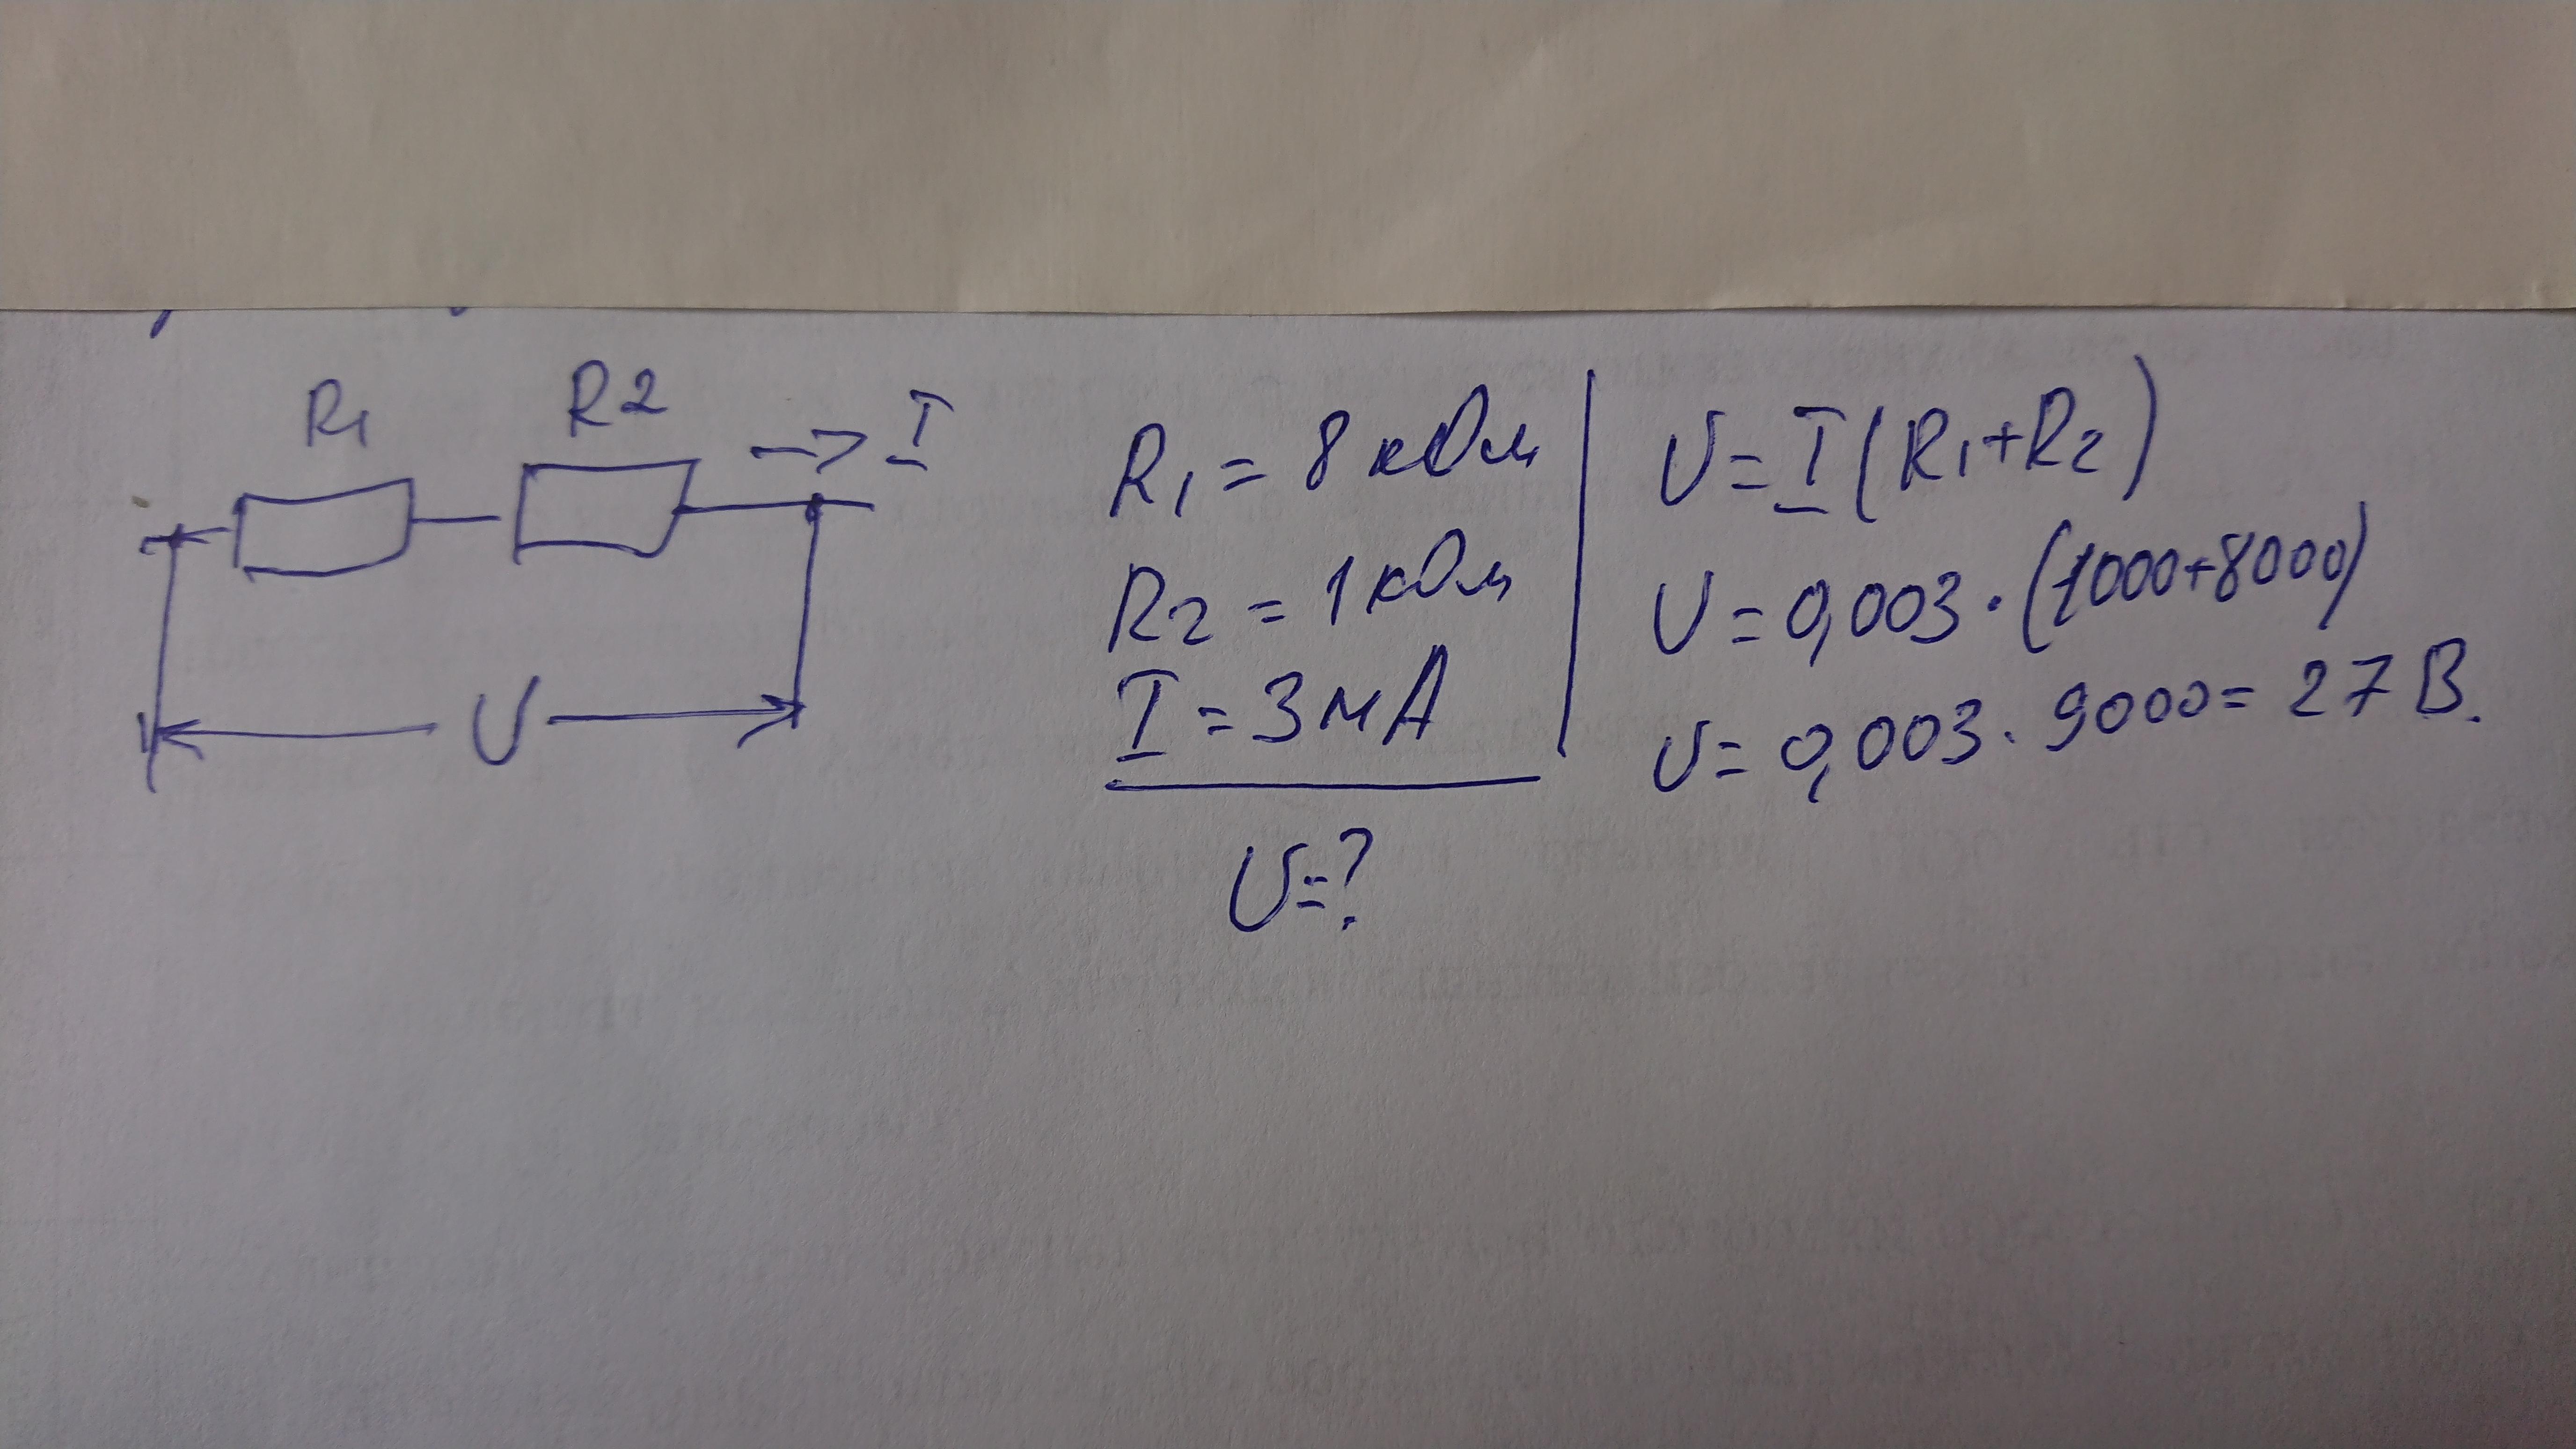 R1
R2
-> I
U
R1 = 8 кОм
R2 = 1 кОм
I = 3 мА
U=?
U = I (R1+R2)
U = 0,003 · (1000+8000)
U = 0,003 · 9000 = 27 В.